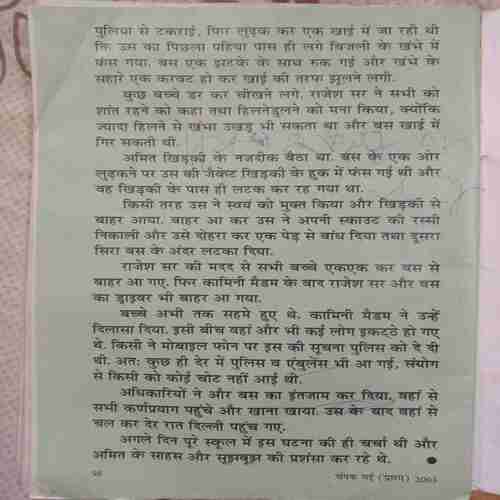 पुलिया से टकराई, फिर लुढ़क कर एक खाई में जा रही थी
कि उस का पिछला पहिया पास ही लगे बिजली के खंभे में
फंस गया. बस एक झटके के साथ रुक गई और खंभे के
सहारे एक करवट हो कर खाई की तरफ झूलने लगी.
कुछ बच्चे डर कर चीखने लगे. राजेश सर ने सभी को
शांत रहने को कहा तथा हिलनेडुलने को मना किया, क्योंकि
ज्यादा हिलने से खंभा उखड़ भी सकता था और बस खाई में
गिर सकती थी.
अमित खिड़की के नजदीक बैठा था. बस के एक ओर
लुढ़कने पर उस की जैकेट खिड़की के हुक में फंस गई थी और
वह खिड़की के पास ही लटक कर रह गया था.
किसी तरह उस ने स्वयं को मुक्त किया और खिड़की से
बाहर आया. बाहर आ कर उस ने अपनी स्काउट की रस्सी
निकाली और उसे दोहरा कर एक पेड़ से बांध दिया तथा दूसरा
सिरा बस के अंदर लटका दिया.
राजेश सर की मदद से सभी बच्चे एकएक कर बस से
बाहर आ गए. फिर कामिनी मैडम के बाद राजेश सर और बस
का ड्राइवर भी बाहर आ गया.
बच्चे अभी तक सहमे हुए थे. कामिनी मैडम ने उन्हें
दिलासा दिया. इसी बीच वहां और भी कई लोग इकट्ठे हो गए
थे. किसी ने मोबाइल फोन पर इस की सूचना पुलिस को दे दी
थी. अतः कुछ ही देर में पुलिस व एंबुलेंस भी आ गई, संयोग
से किसी को कोई चोट नहीं आई थी.
अधिकारियों ने और बस का इंतजाम कर दिया. वहां से
सभी कर्णप्रयाग पहुंचे और खाना खाया. उस के बाद वहां से
चल कर देर रात दिल्ली पहुंच गए.
अगले दिन पूरे स्कूल में इस घटना की ही चर्चा थी और
अमित के साहस और सूझबूझ की प्रशंसा कर रहे थे.
चंपक मई (प्रथम) 2003